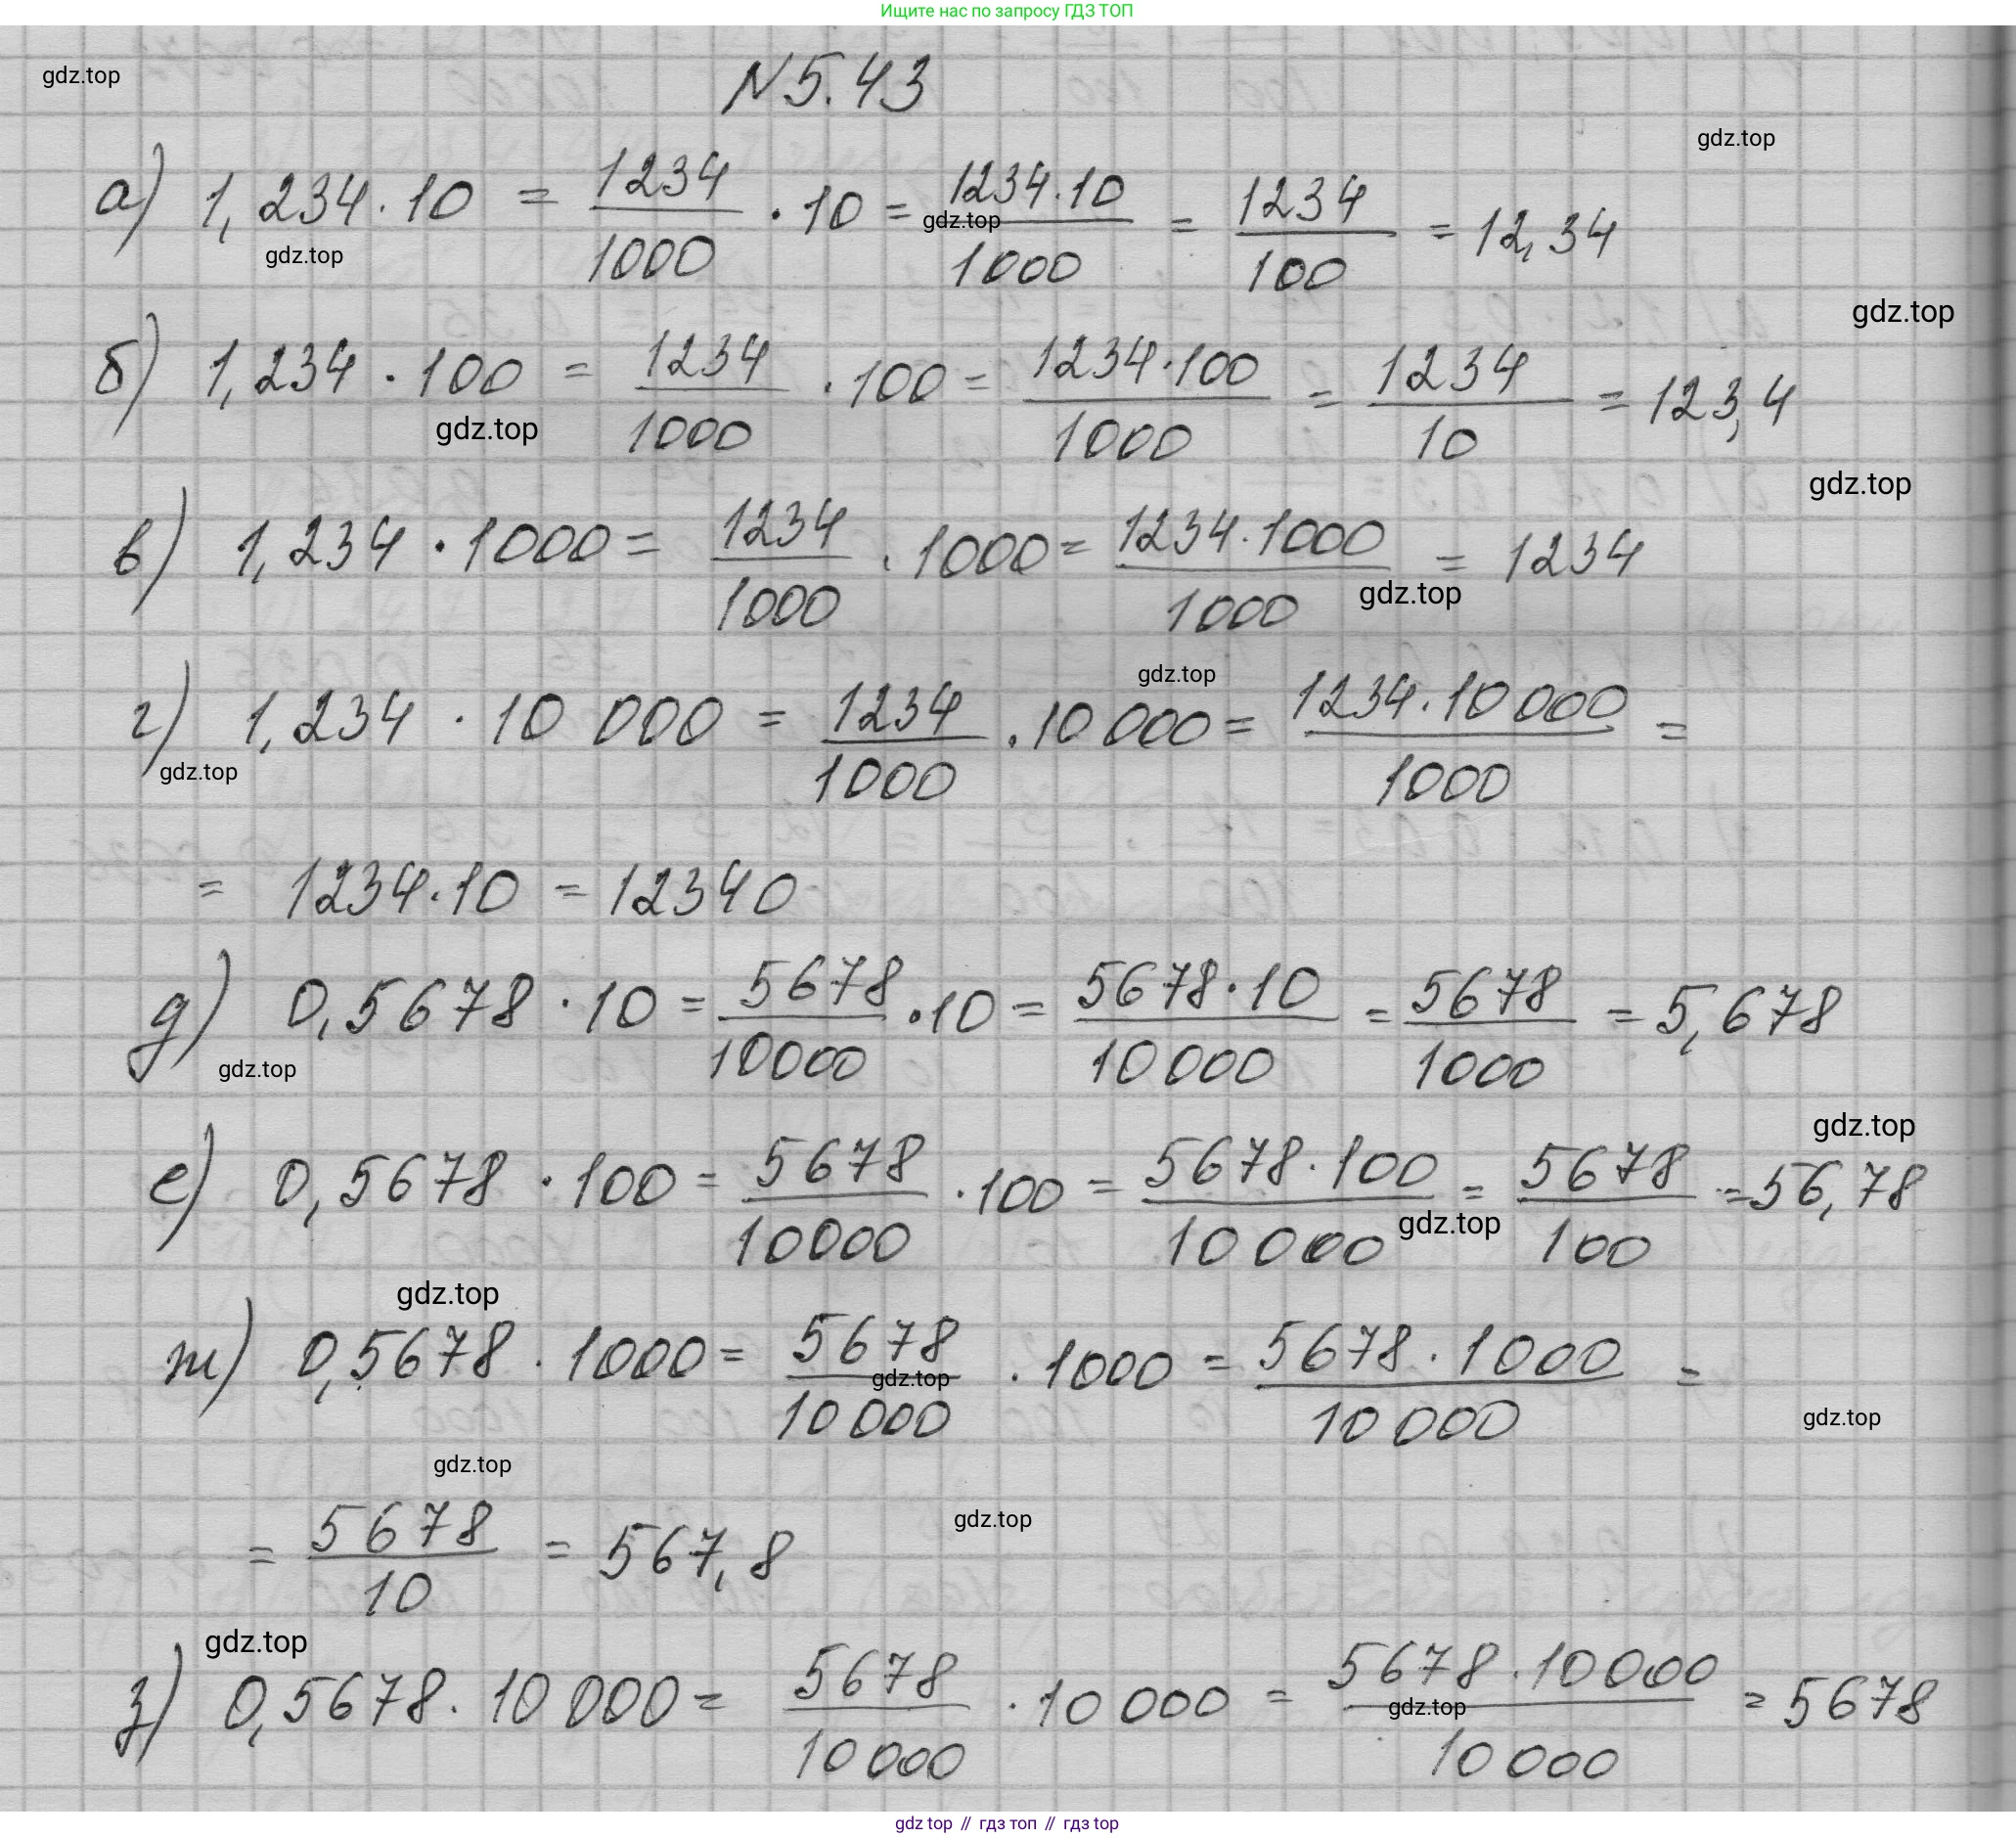 Ищите нас по запросу ГДЗ ТОП
gdz.top
N 5.43
gdz.top
а) 1,234 · 10 = 1234/1000 · 10 = 1234·10/1000 = 1234/100 = 12,34
gdz.top
gdz.top
gdz.top
б) 1,234 · 100 = 1234/1000 · 100 = 1234·100/1000 = 1234/10 = 123,4
gdz.top
gdz.top
в) 1,234 · 1000 = 1234/1000 · 1000 = 1234·1000/1000 = 1234
gdz.top
gdz.top
г) 1,234 · 10 000 = 1234/1000 · 10 000 = 1234·10 000/1000 =
gdz.top
= 1234·10 = 12340
д) 0,5678 · 10 = 5678/10000 · 10 = 5678·10/10 000 = 5678/1000 = 5,678
gdz.top
gdz.top
е) 0,5678 · 100 = 5678/10000 · 100 = 5678·100/10 000 = 5678/100 = 56,78
gdz.top
gdz.top
ж) 0,5678 · 1000 = 5678/10 000 · 1000 = 5678·1000/10 000 =
gdz.top
gdz.top
gdz.top
gdz.top
= 5678/10 = 567,8
gdz.top
з) 0,5678 · 10 000 = 5678/10 000 · 10 000 = 5678·10 000/10 000 = 5678
gdz.top
gdz top // гдз топ // gdz top